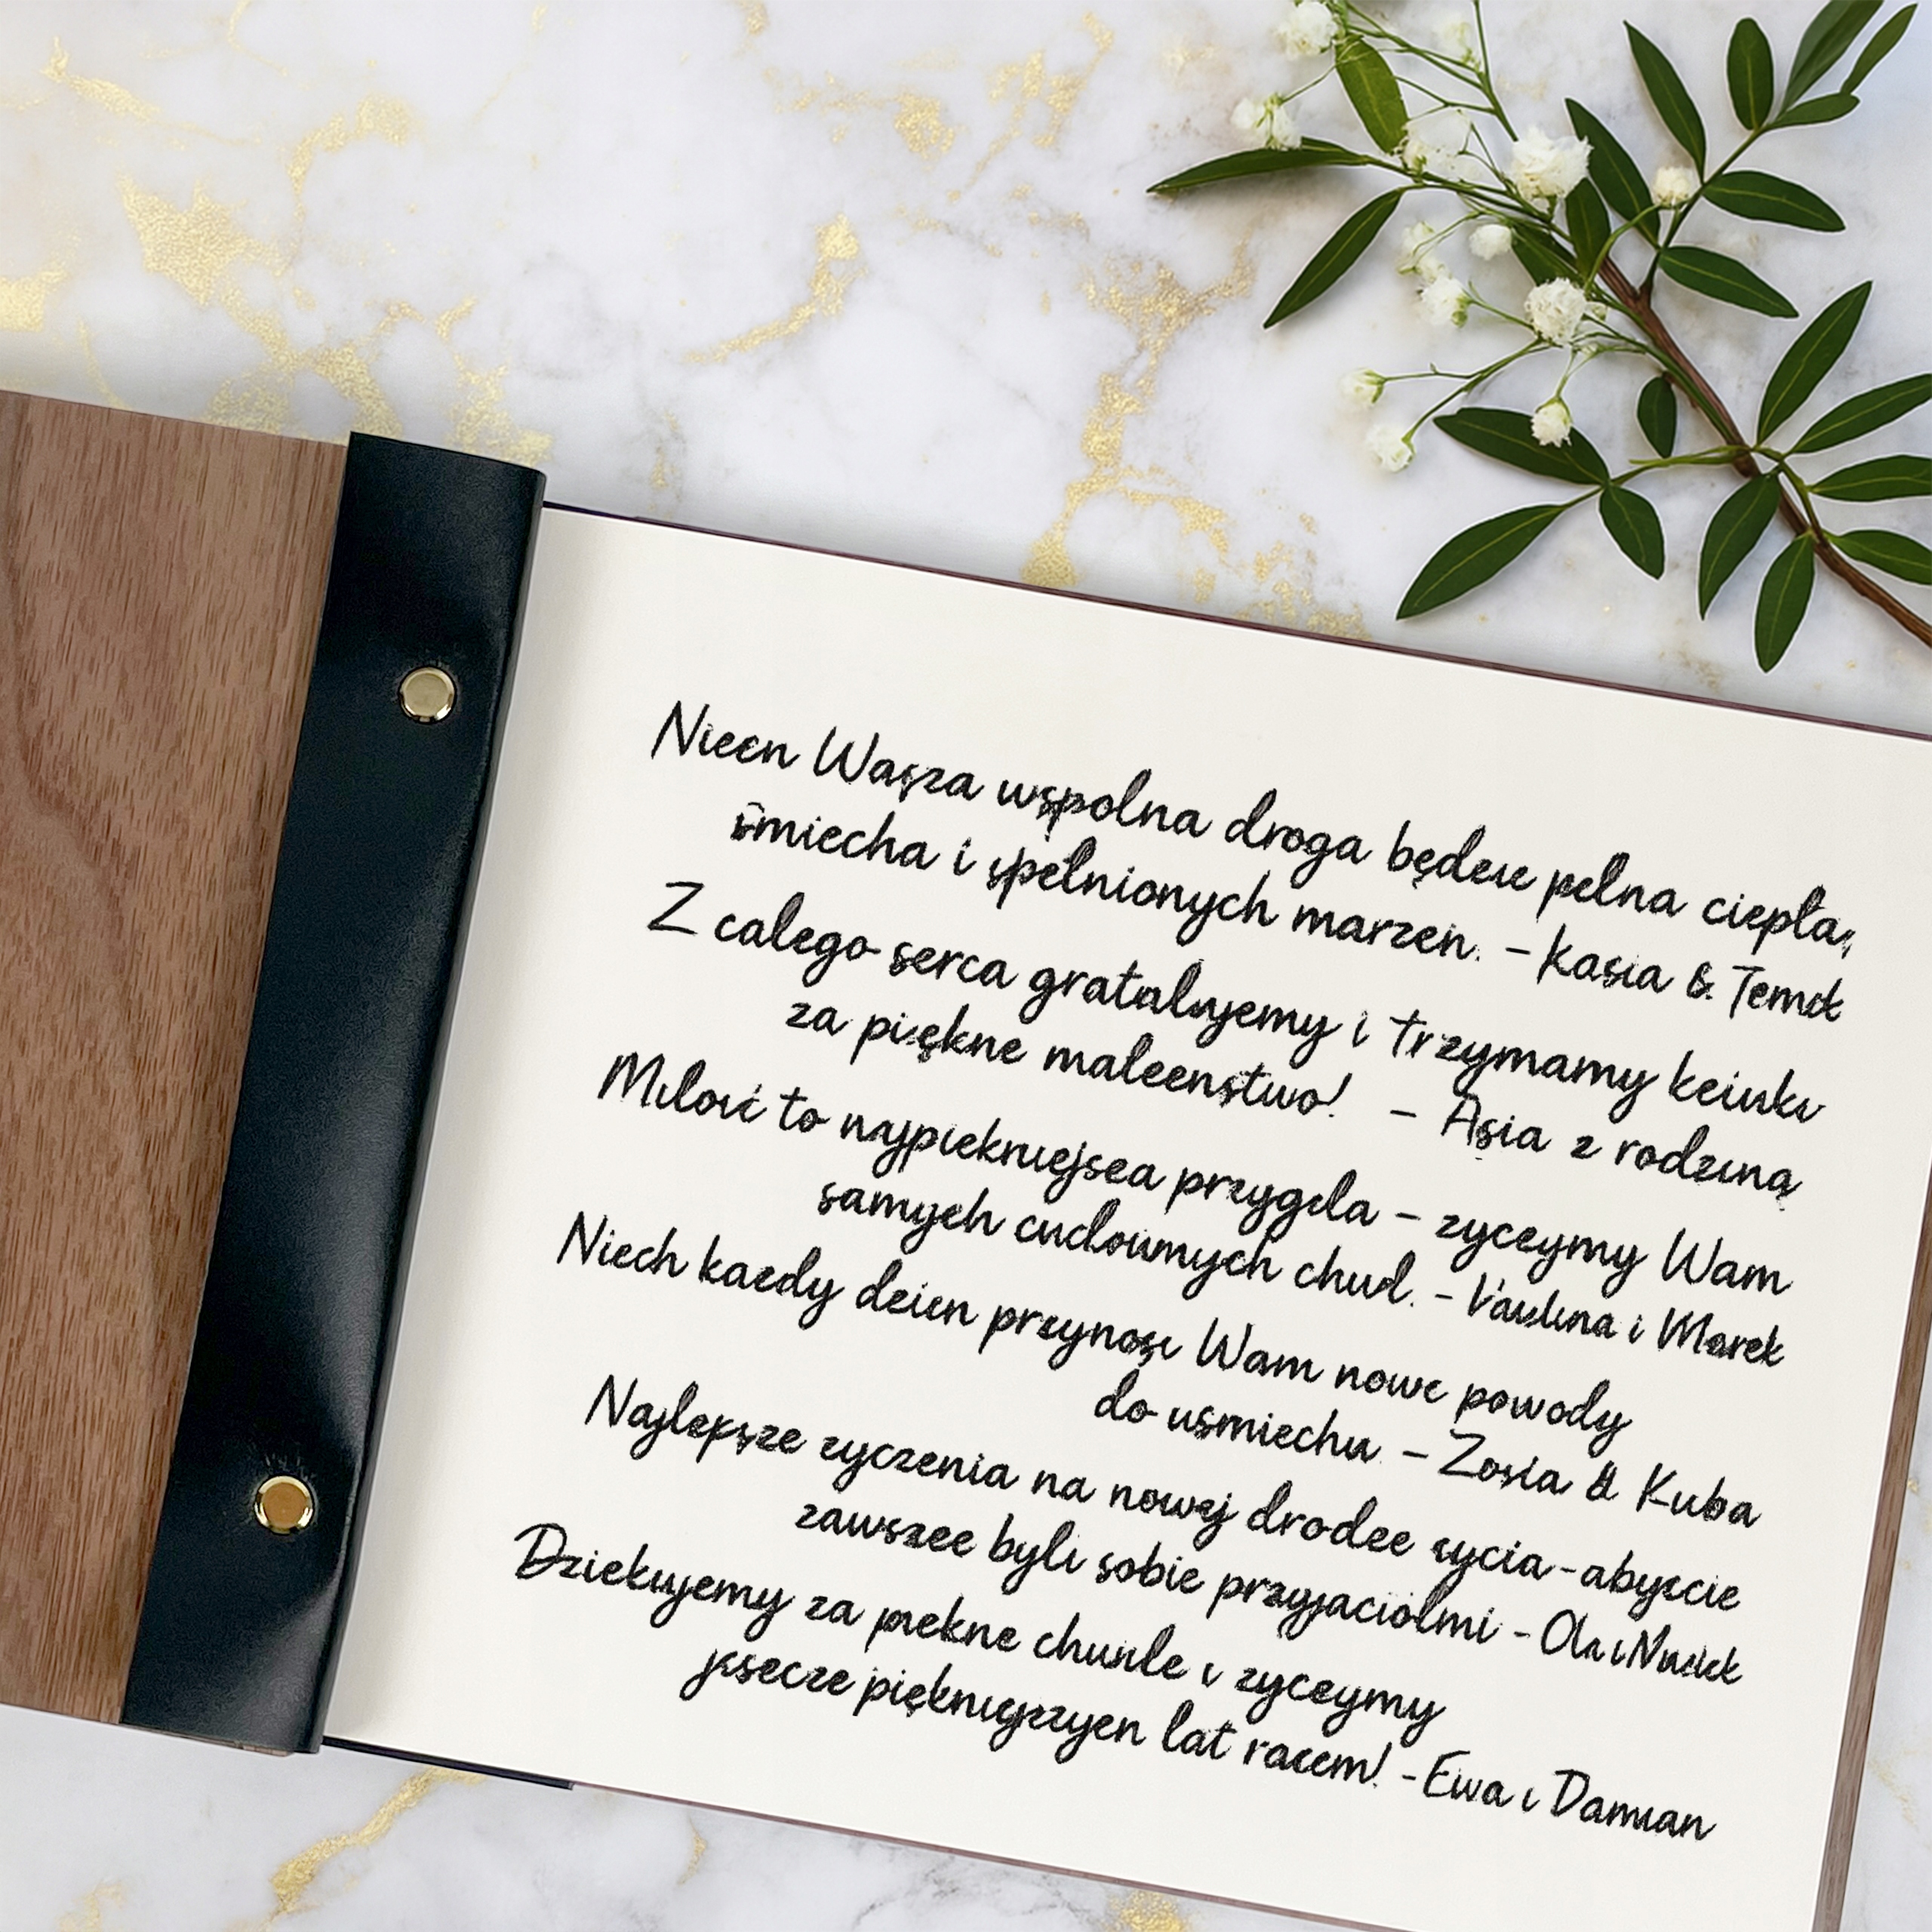 Nieen Wasza wspolna droga będeie pełna ciepła,
śmiecha i spełnionych marzen. – Kasia & Temek
Z calego serca gratalujemy i trzymamy keiuki
za piękne maleenstwo! – Asia z rodziną
Milość to najpiekniejsea przygoda – zyceymy Wam
samyeh cudownych chwil. – Paulina i Marek
Niech kaedy dzien przynosi Wam nowe powody
do usmiechu – Zosia & Kuba
Najlepsze zyczenia na nowej drodee zycia – abyscie
zawszee byli sobie przyjaciołmi – Ola i
Dziekujemy za piekne chwile i zyceymy
jesecze lat racem! – Ewa i Damian